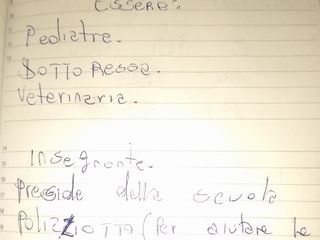 Essere:
Pediatra.
Dottoressa.
Veterinaria.
Insegnante.
Preside della scuola
Poliziotta (Per aiutare le